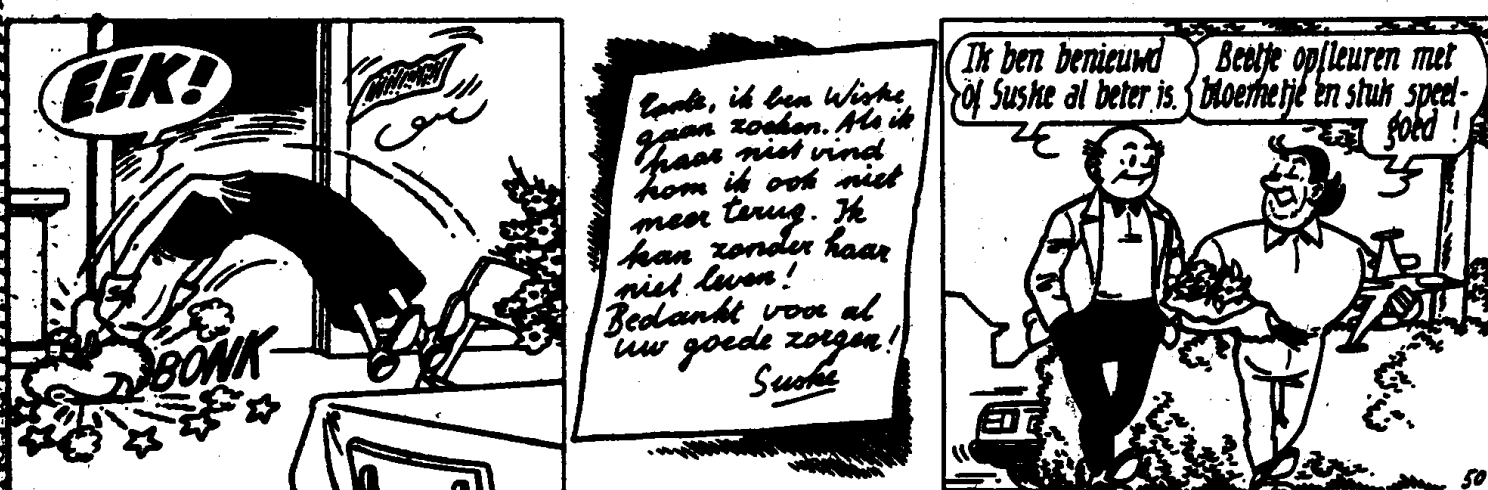 EEK!
BONK
Tante, ik ben Wiske
gaan zoeken. Als ik
haar niet vind
kom ik ook niet
meer terug. Ik
kan zonder haar
niet leven!
Bedankt voor al
uw goede zorgen!
Suske
Ik ben benieuwd
of Suske al beter is.
Beetje opfleuren met
bloemetje en stuk speel-
goed !
50